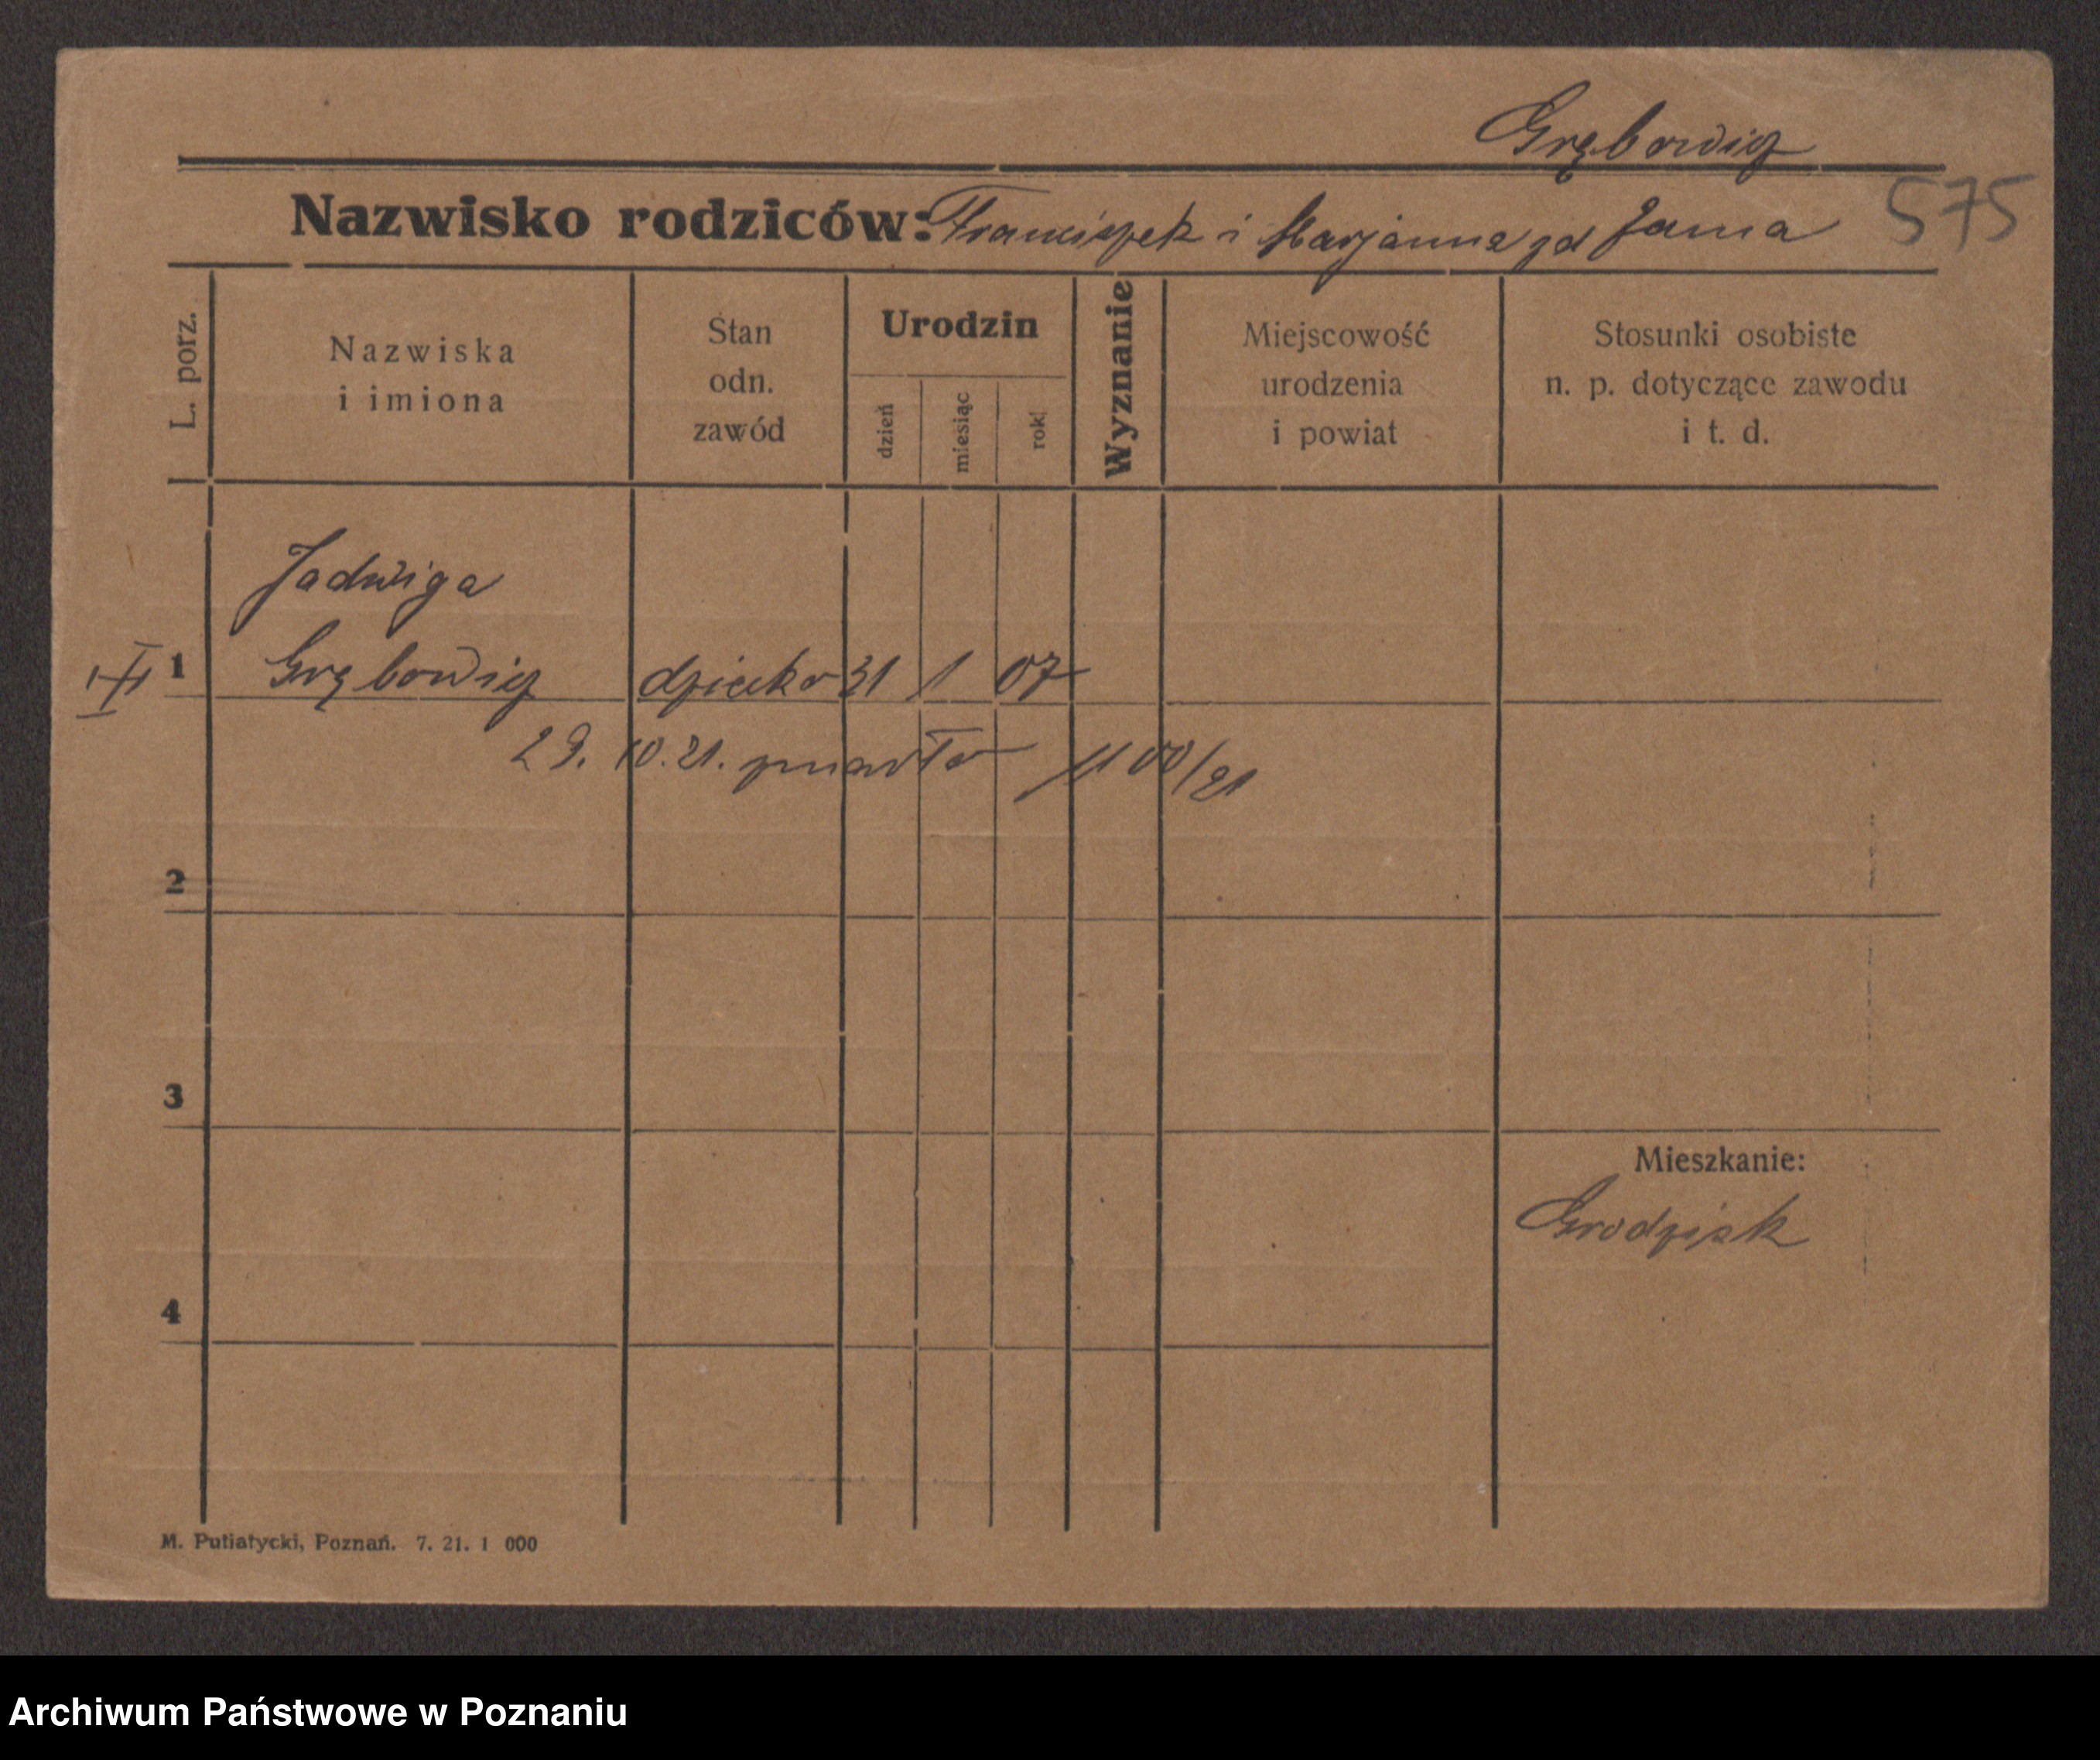 Grębowicz
Nazwisko rodziców: Franciszek i Marjanna zd Jama 575
L. porz.
Nazwiska i imiona
Stan odn. zawód
Urodzin
dzień
miesiąc
rok
Wyznanie
Miejscowość urodzenia i powiat
Stosunki osobiste n. p. dotyczące zawodu i t. d.
Jadwiga
1 Grębowicz dziecko 31 1 07
29. 10. 21. zmarła 1100/21
2
3
Mieszkanie:
Grodzisk
4
M. Putiatycki, Poznań. 7. 21. 1 000
Archiwum Państwowe w Poznaniu